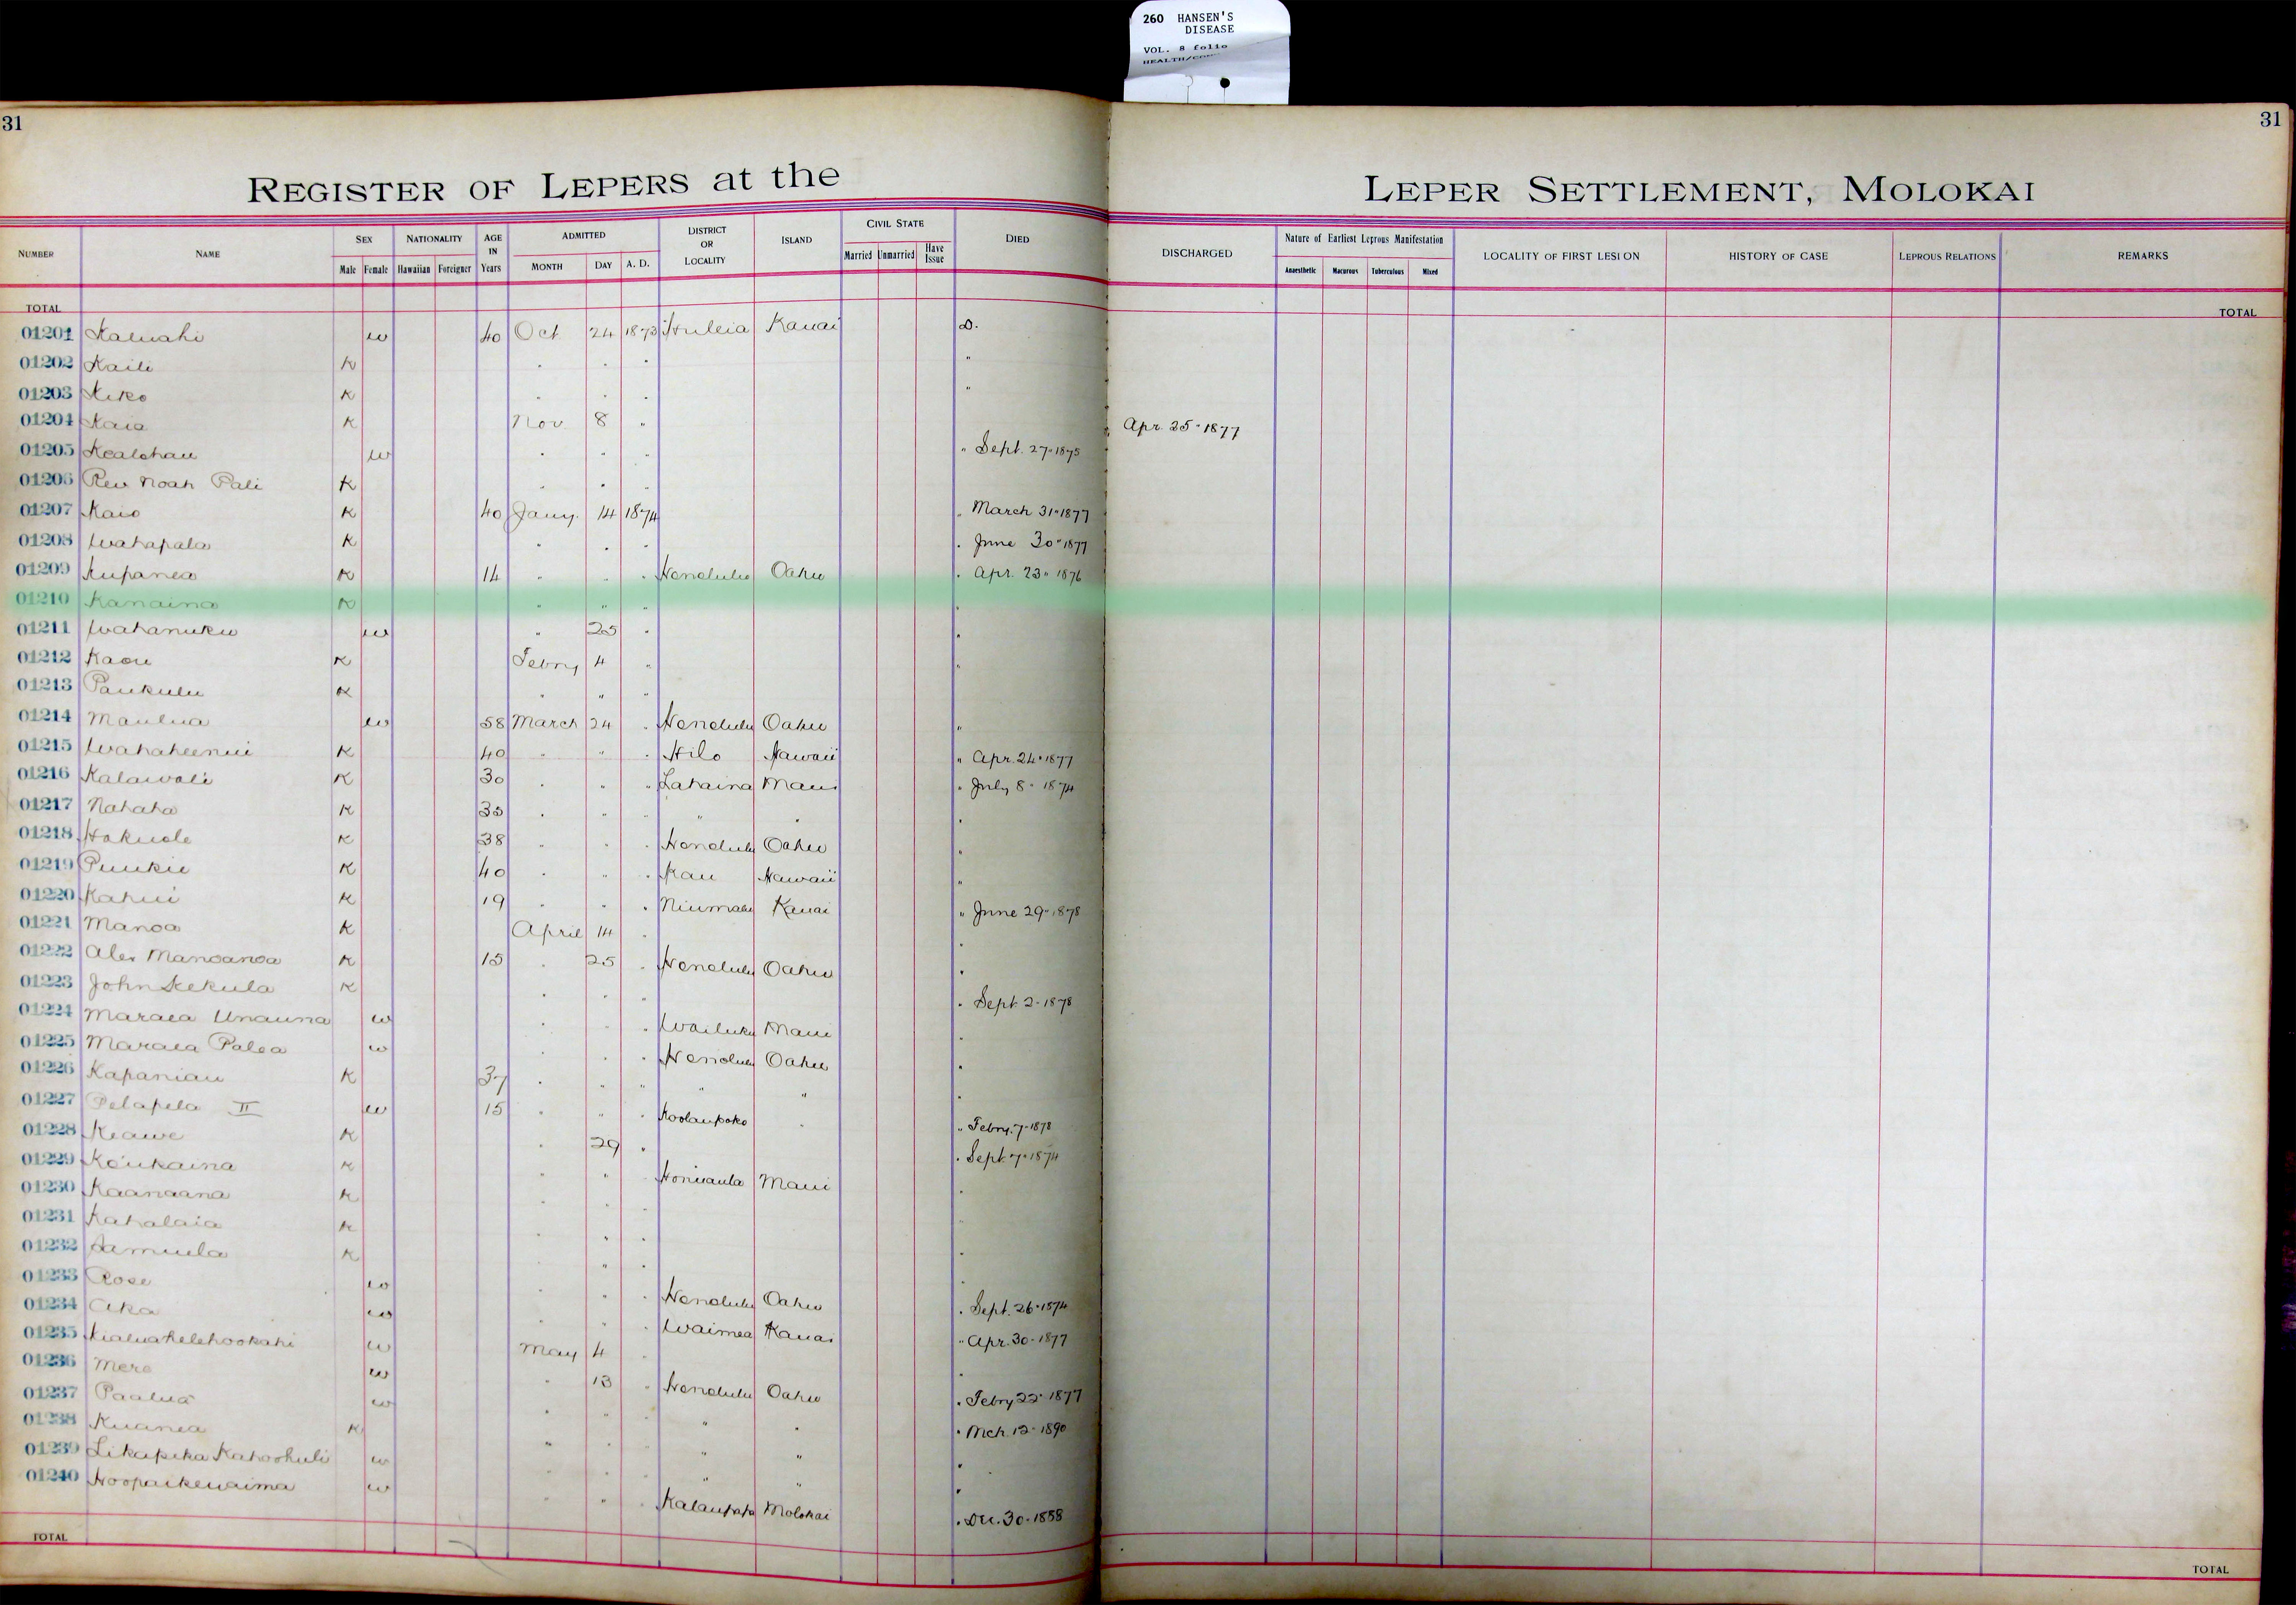 260 HANSEN'S
DISEASE
VOL. 8 folio
31 31
REGISTER OF LEPERS at the LEPER SETTLEMENT, MOLOKAI
NUMBER NAME SEX NATIONALITY AGE IN Years ADMITTED DISTRICT OR LOCALITY ISLAND CIVIL STATE DIED DISCHARGED Nature of Earliest Leprous Manifestation LOCALITY OF FIRST LESION HISTORY OF CASE LEPROUS RELATIONS REMARKS
Male Female Hawaiian Foreigner MONTH DAY A. D. Married Unmarried Have Issue Anaesthetic Macurous Tuberculous Mixed
TOTAL TOTAL
01201 Kaluahi w 40 Oct 24 1873 Huleia Kauai D.
01202 Kaili K " " " "
01203 Keko K " " " "
01204 Kaia K Nov 8 " " Apr. 25" 1877
01205 Kealohau w " " " " Sept. 27" 1875
01206 Rev Noah Pali K " " "
01207 Kaio K 40 Jany. 14 1874 " March 31" 1877
01208 Wahapala K " " " " June 30" 1877
01209 Kupanea K 14 " " " Honolulu Oahu " Apr. 23" 1876
01210 Kanaina K " " " "
01211 Wahanuku w " 25 " "
01212 Kaou K Febry 4 " "
01213 Paukulu K " " "
01214 Maulua w 58 March 24 " Honolulu Oahu "
01215 Wahaheenui K 40 " " " Hilo Hawaii " Apr. 24" 1877
01216 Kalawali K 30 " " " Lahaina Maui " July 8" 1874
01217 Nahaha K 35 " " " " " "
01218 Hakuole K 38 " " " Honolulu Oahu "
01219 Puukie K 40 " " " Kau Hawaii "
01220 Kahui K 19 " " " Niumalu Kauai " June 29" 1878
01221 Manoa K April 14 " "
01222 Alex Manoanoa K 15 " 25 " Honolulu Oahu "
01223 John Kekula K " " " " Sept. 2" 1878
01224 Maraea Unauna w " " " Wailuku Maui "
01225 Maraea Palea w " " " Honolulu Oahu "
01226 Kapaniau K 37 " " " " " "
01227 Pelapela II w 15 " " " Koolaupoko " " Febry. 7" 1878
01228 Keawe K " 29 " " Sept. 7" 1874
01229 Koukaina K " " " Honuaula Maui "
01230 Kaanaana K " " "
01231 Kahalaia K " " " "
01232 Samuela K " " "
01233 Rose w " " " Honolulu Oahu " Sept. 26" 1874
01234 Aka w " " " Waimea Kauai " Apr. 30" 1877
01235 Kialuahelehookahi w May 4 " "
01236 Mere w " 13 " Honolulu Oahu " Febry 22" 1877
01237 Paalua w " " " " " " Mch. 12" 1890
01238 Kuanea K " " " " " "
01239 Likapeka Kahoohuli w " " " " " "
01240 Hoopaikewaima w " " " Kalaupapa Molokai " Dec. 30" 1888
TOTAL TOTAL